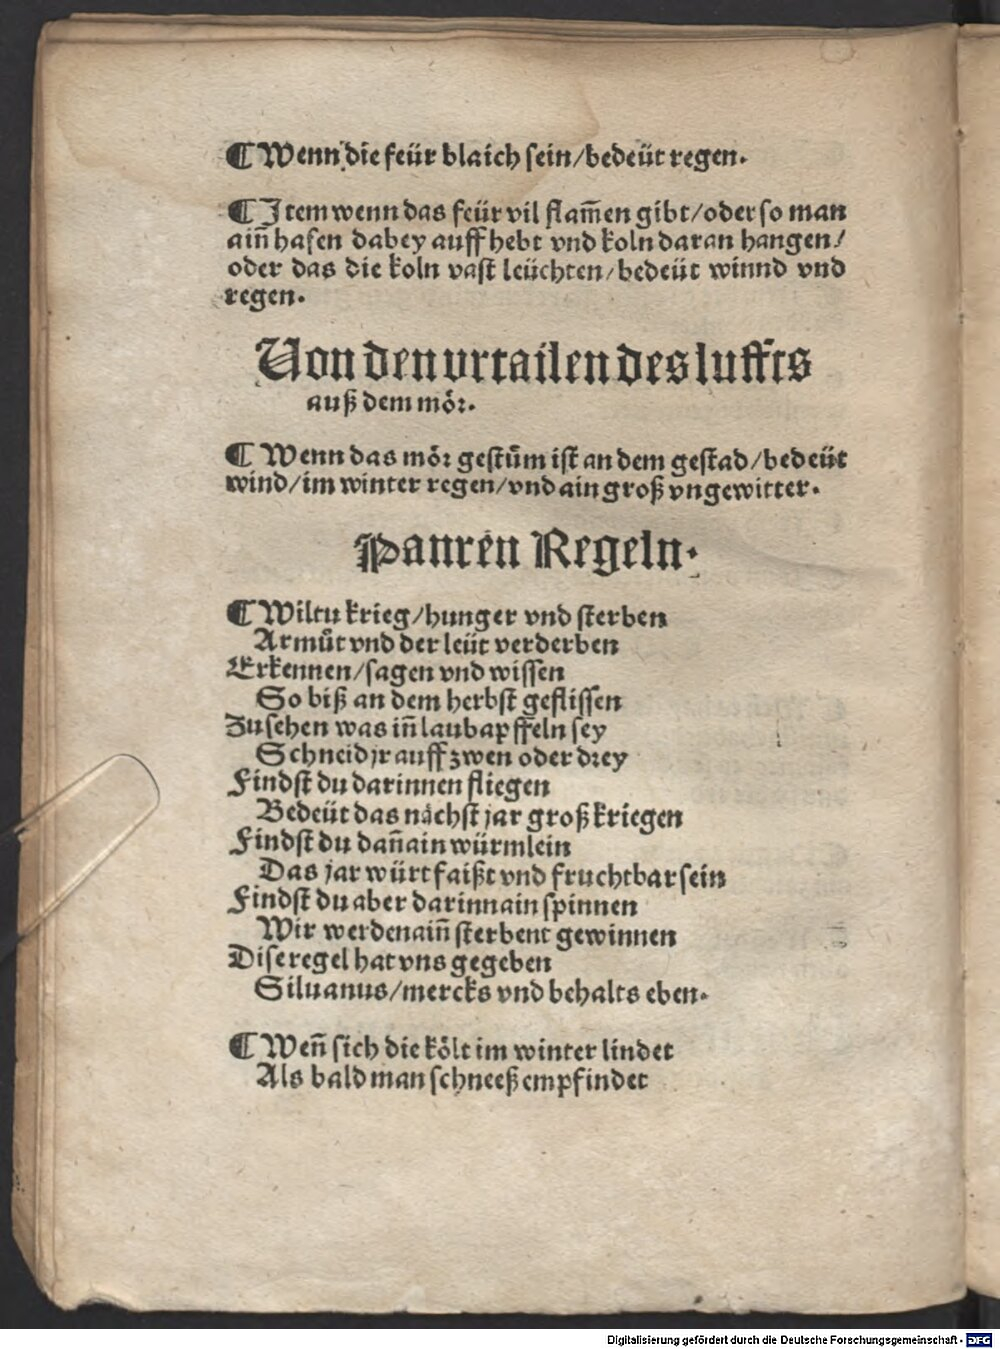 ¶ Wenn die feür blaich sein/bedeüt regen.
¶ Item wenn das feür vil flam̄en gibt/oder so man
ain̄ hafen dabey auff hebt vnd koln daran hangen/
oder das die koln vast leüchten/bedeüt winnd vnd
regen.
Von den vrtailen des luffts
auß dem mör.
¶ Wenn das mör gestům ist an dem gestad/bedeüt
wind/im winter regen/vnd ain groß vngewitter.
Pauren Regeln.
¶ Wiltu krieg/hunger vnd sterben
Armůt vnd der leüt verderben
Erkennen/sagen vnd wissen
So biß an dem herbst geflissen
Zu sehen was in̄ laubapffeln sey
Schneid jr auff zwen oder drey
Findst du darinnen fliegen
Bedeüt das nächst jar groß kriegen
Findst du dan̄ ain würmlein
Das jar würt faißt vnd fruchtbar sein
Findst du aber darinn ain spinnen
Wir werden ain̄ sterbent gewinnen
Dise regel hat vns gegeben
Siluanus/mercks vnd behalts eben.
¶ Wen̄ sich die költ im winter lindet
Als bald man schneeß empfindet
Digitalisierung gefördert durch die Deutsche Forschungsgemeinschaft - DFG